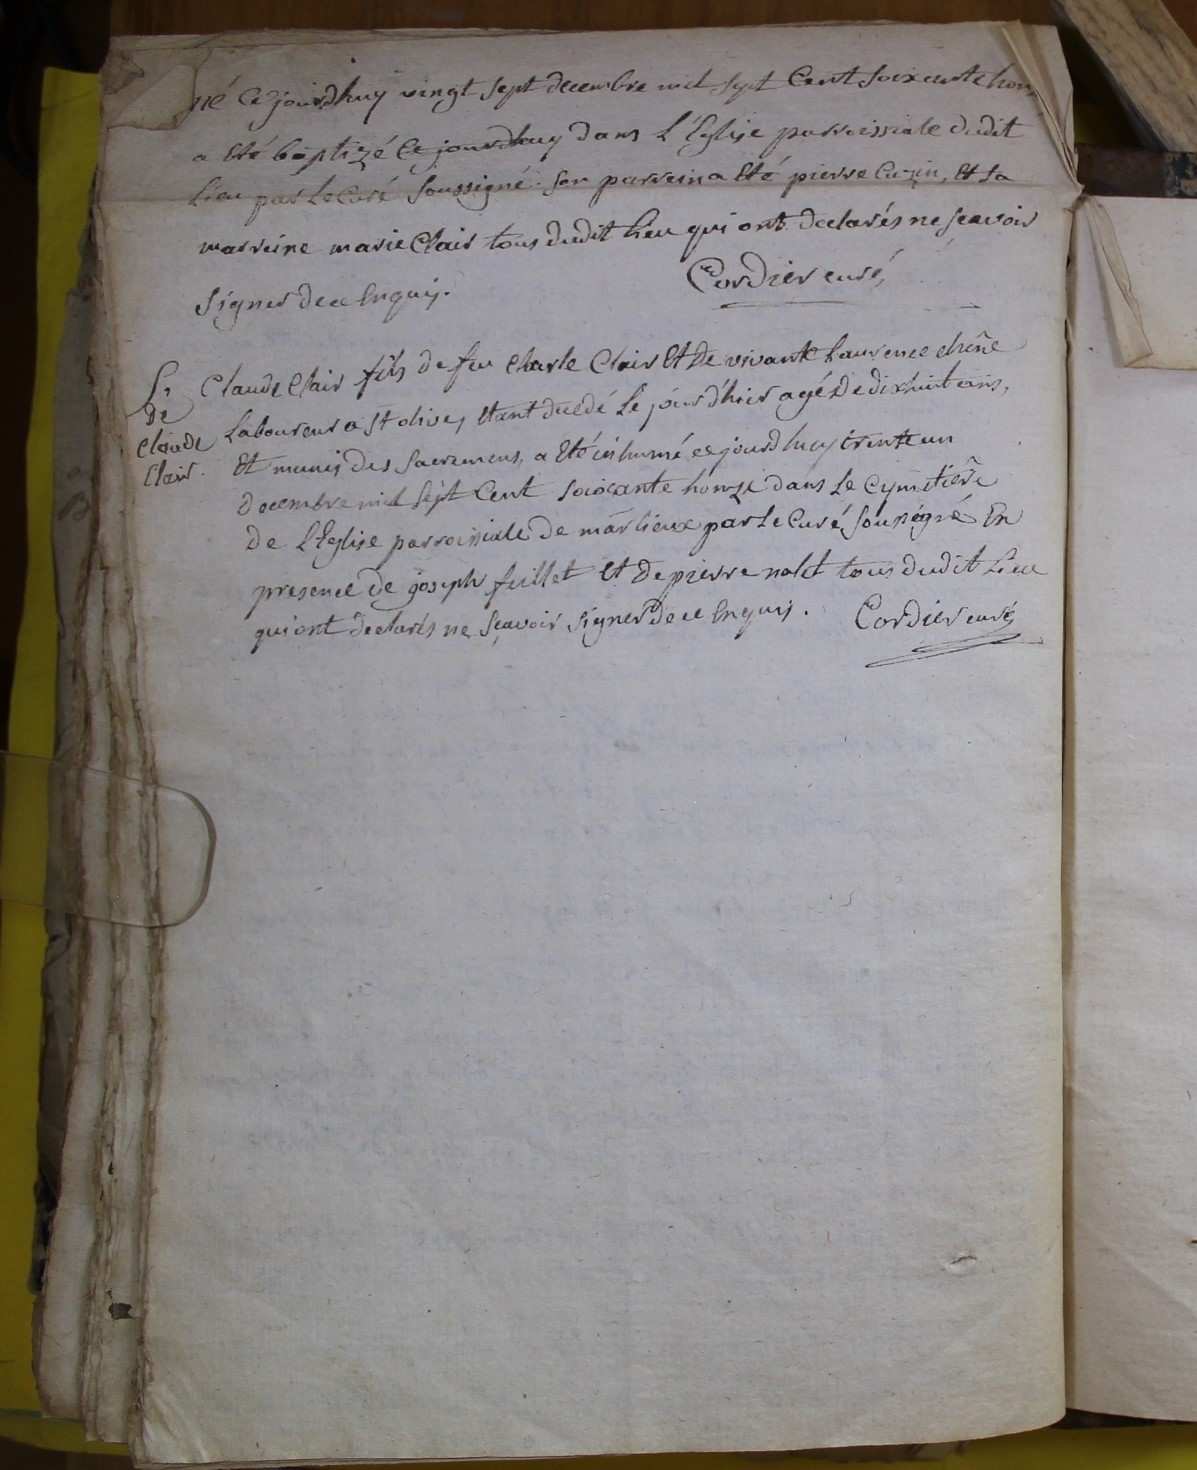 né Ce jourdhuy vingt sept decembre mil sept Cent soixante honze
a Eté baptizé Ce jourdhuy dans L'Eglise parroissiale dudit
Lieu par Le Curé soussigné. son parrein a Eté pierre Cuzin, Et sa
marreine marie Clair tous dudit Lieu qui ont declarés ne sçavoir
signer de ce Enquis.
Cordier curé,
S.re
de
Claude
Clair.
Claude Clair fils de feu Charle Clair Et De vivante Laurence chêne
Laboureur a St olive, Etant decedé Le jour d'hier agé De dix huit ans,
Et munis des sacremens, a Eté inhumé ce jourdhuy trente un
Decembre mil sept Cent soixante honze dans Le Cymetiere
De L'Eglise parroissiale De marlieux par Le Curé soussigné En
presence De joseph fuillet Et De pierre nolet tous dudit Lieu
qui ont declarés ne sçavoir signer De ce Enquis.
Cordier curé